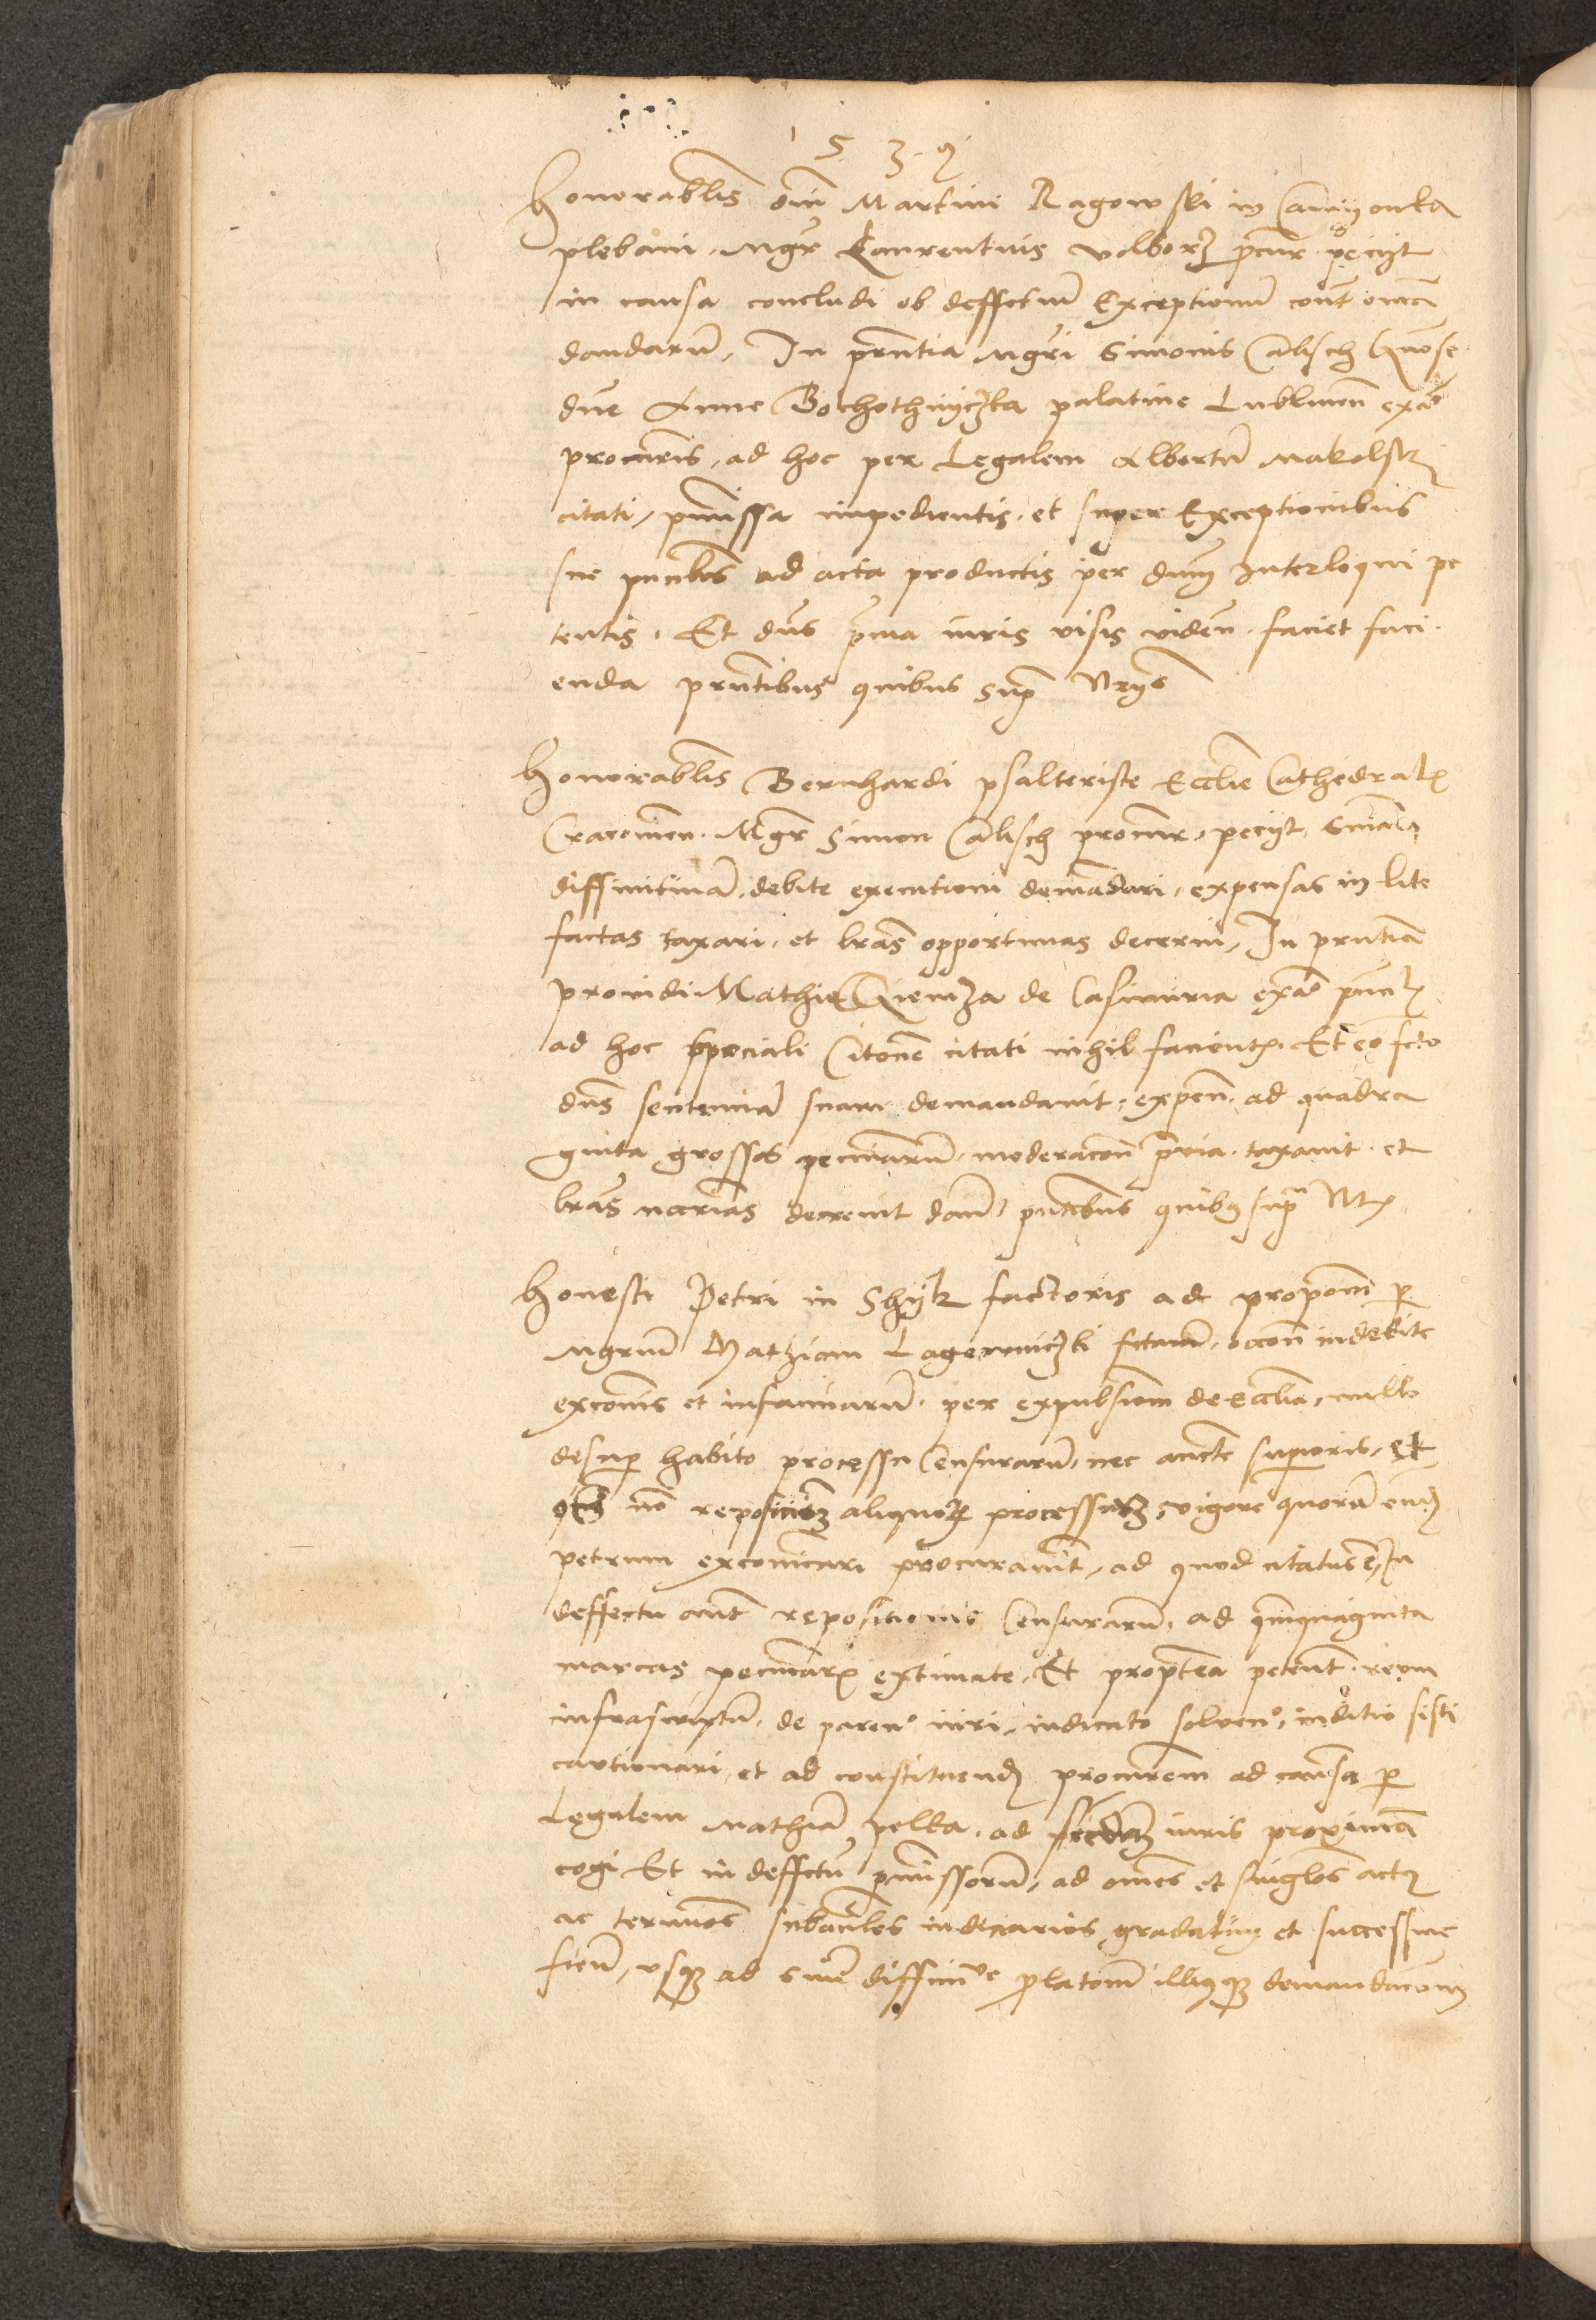 1 5 3 9
honorablis dni Martini Ragowski in Camyonka
plebani. Mgr Laurentius Volborz pcur pecyt
in causa concludi ob deffctum Exceptionum cont omnia
dandarum, In prntia Mgri Simonis Calisch
dne Anne Bochothnyczka palatine Lublinen exa
procuris, ad hoc per Legalem Albertum Makolsk
citati, pmissa impedientis. et super Exceptionibus
sue ad acta productis per dnum Interloqui pe
tentis. Et dns pma iuris visis viden. faciet faci
enda prntibus quibus sup Nrys
honorablis Bernhardi psalteriste Ecclie Cathedralis
Cracovien. Mgr Simon Calisch procur. pecyt, sniam
diffinitivam. debite executioni demandari, expensas in lite
factas taxari. et lras opportunas decerni, In prntia
providi Mathie de Casimiria exa
ad hoc sppeciali Citone citati nihil facientis. Et eo fcto
dns sentenciam suam demandavit, expen. ad quadra
ginta grossos pecuniarum, moderacon pvia. taxavit. et
lras ncrias decrevit dam, pntibus quibus supra Nt
honesti Petri in Shyk factoris ad proponi per
Mgrum Mathiam Lagewniczki fctam, occon indebite
exconis et infamiarum. per expulsionem de Ecclia, nullo
desup habito processu Censurarum, nec aucte superioris, et
non reposicionem aliquorum processuum, vigore quorum eund
petrum exconicari procuravit, ad quod citatus e, In
deffectu aut repositionis Censurarum, ad quinquaginta
marcas pecuniar extimate, Et propterea petent. reum
infrascriptum. de paren iuri, iudicato solven, iuditio sisti
cautionari, et ad constituend procurem ad causam per
Legalem Mathiam pelka. ad iuris proximam
cogi Et in deffctum pmissorum, ad omnes et singlos actus
ac terminos subantles iudiciarios gradatim et successive
fiend, usque ad snie diffinitve platonem illiusque demandacionem